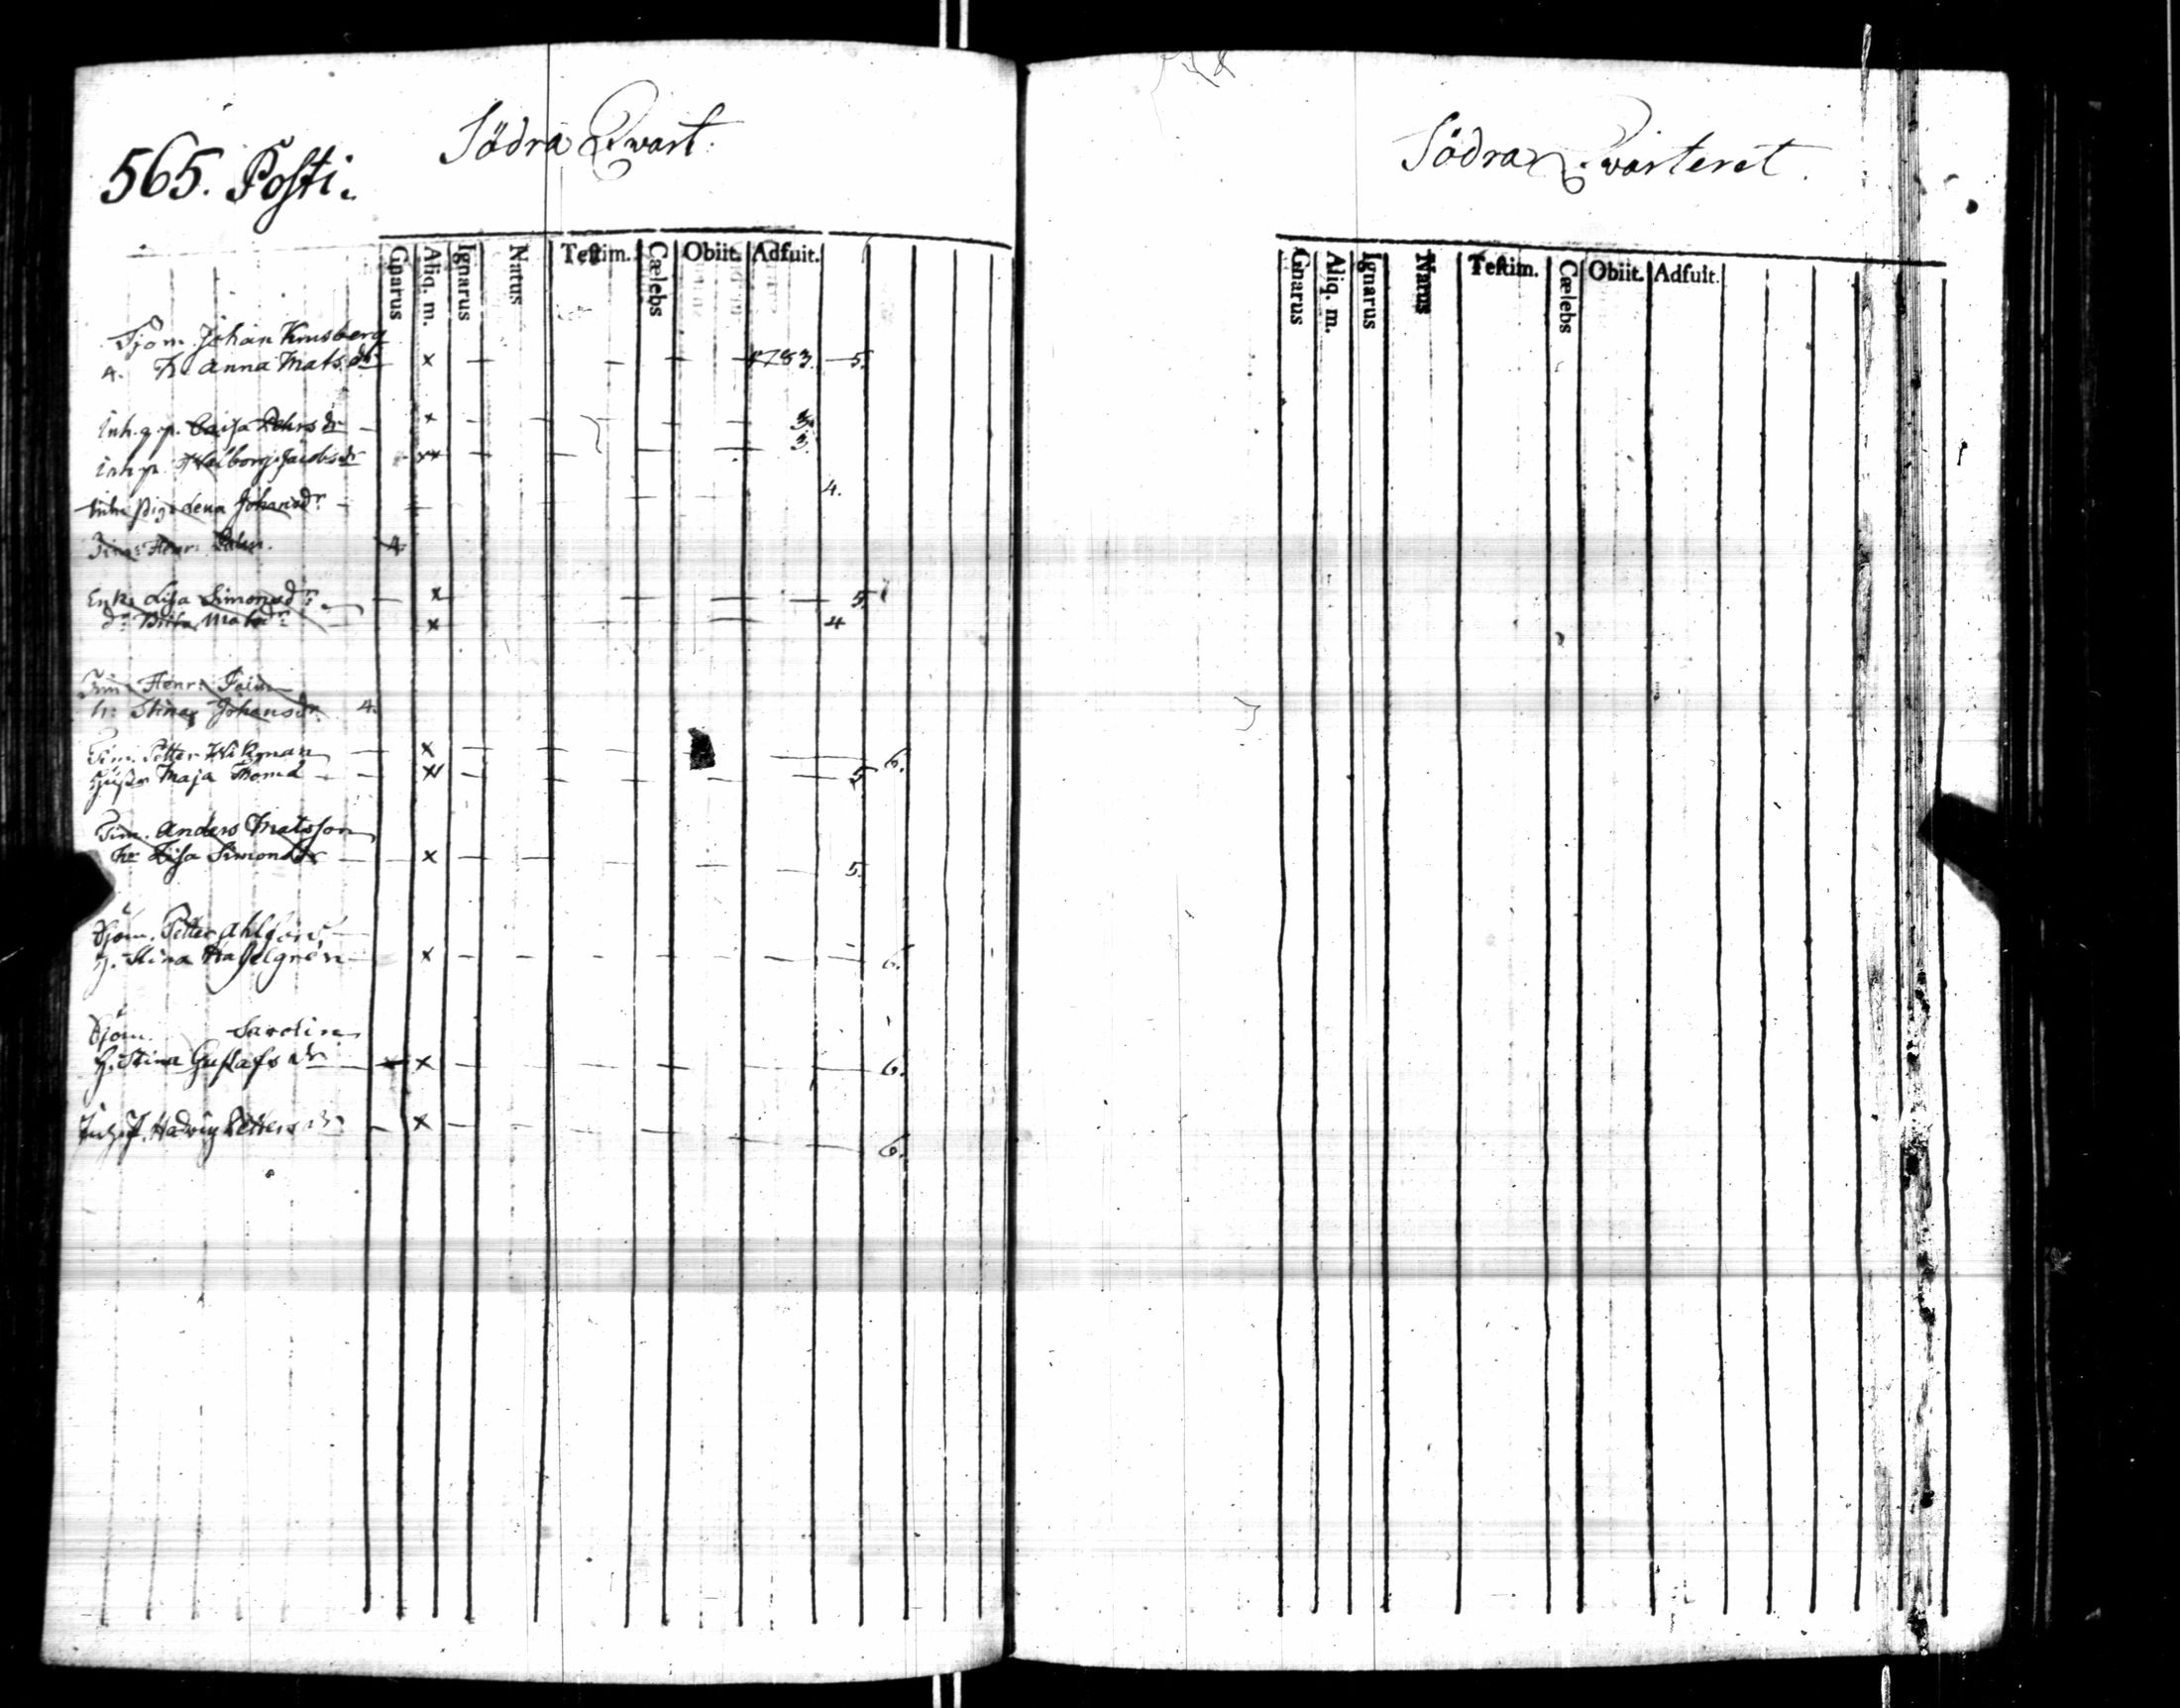 Södra Qvart.
565. Posti.
Gnarus Aliq. m. Ignarus Natus Testim. Cælebs Obiit. Adfuit.
Sjöm. Johan
H. Anna Mats dr x 1783. 5.
Inh. q. p. Caisa Pehrs dr x 3.
Inh. p. Walborg Jacobs dr 3.
Inh. Pig. Lena Johansdr 4.
Tim: Henr: 4.
Enk. Lisa Simonsdr x 5
do Brita Matsdr x 4
Tim Henr:
h: Stina Johansdr 4.
Tim. Petter Wikman x 6.
Hust. Maja Thomæ 5
Tim. Anders Matsson
hu Lisa Simonsdr x 5.
Sjöm. Petter
H. Stina Hasselgrén x 6.
Sjöm.
H. Stina Gustafs dr x 6.
Inh. P. Hedvig Petters dr x 6.
Södra Qvarteret.
Gnarus Aliq. m. Ignarus Natus Testim. Cælebs Obiit. Adfuit.